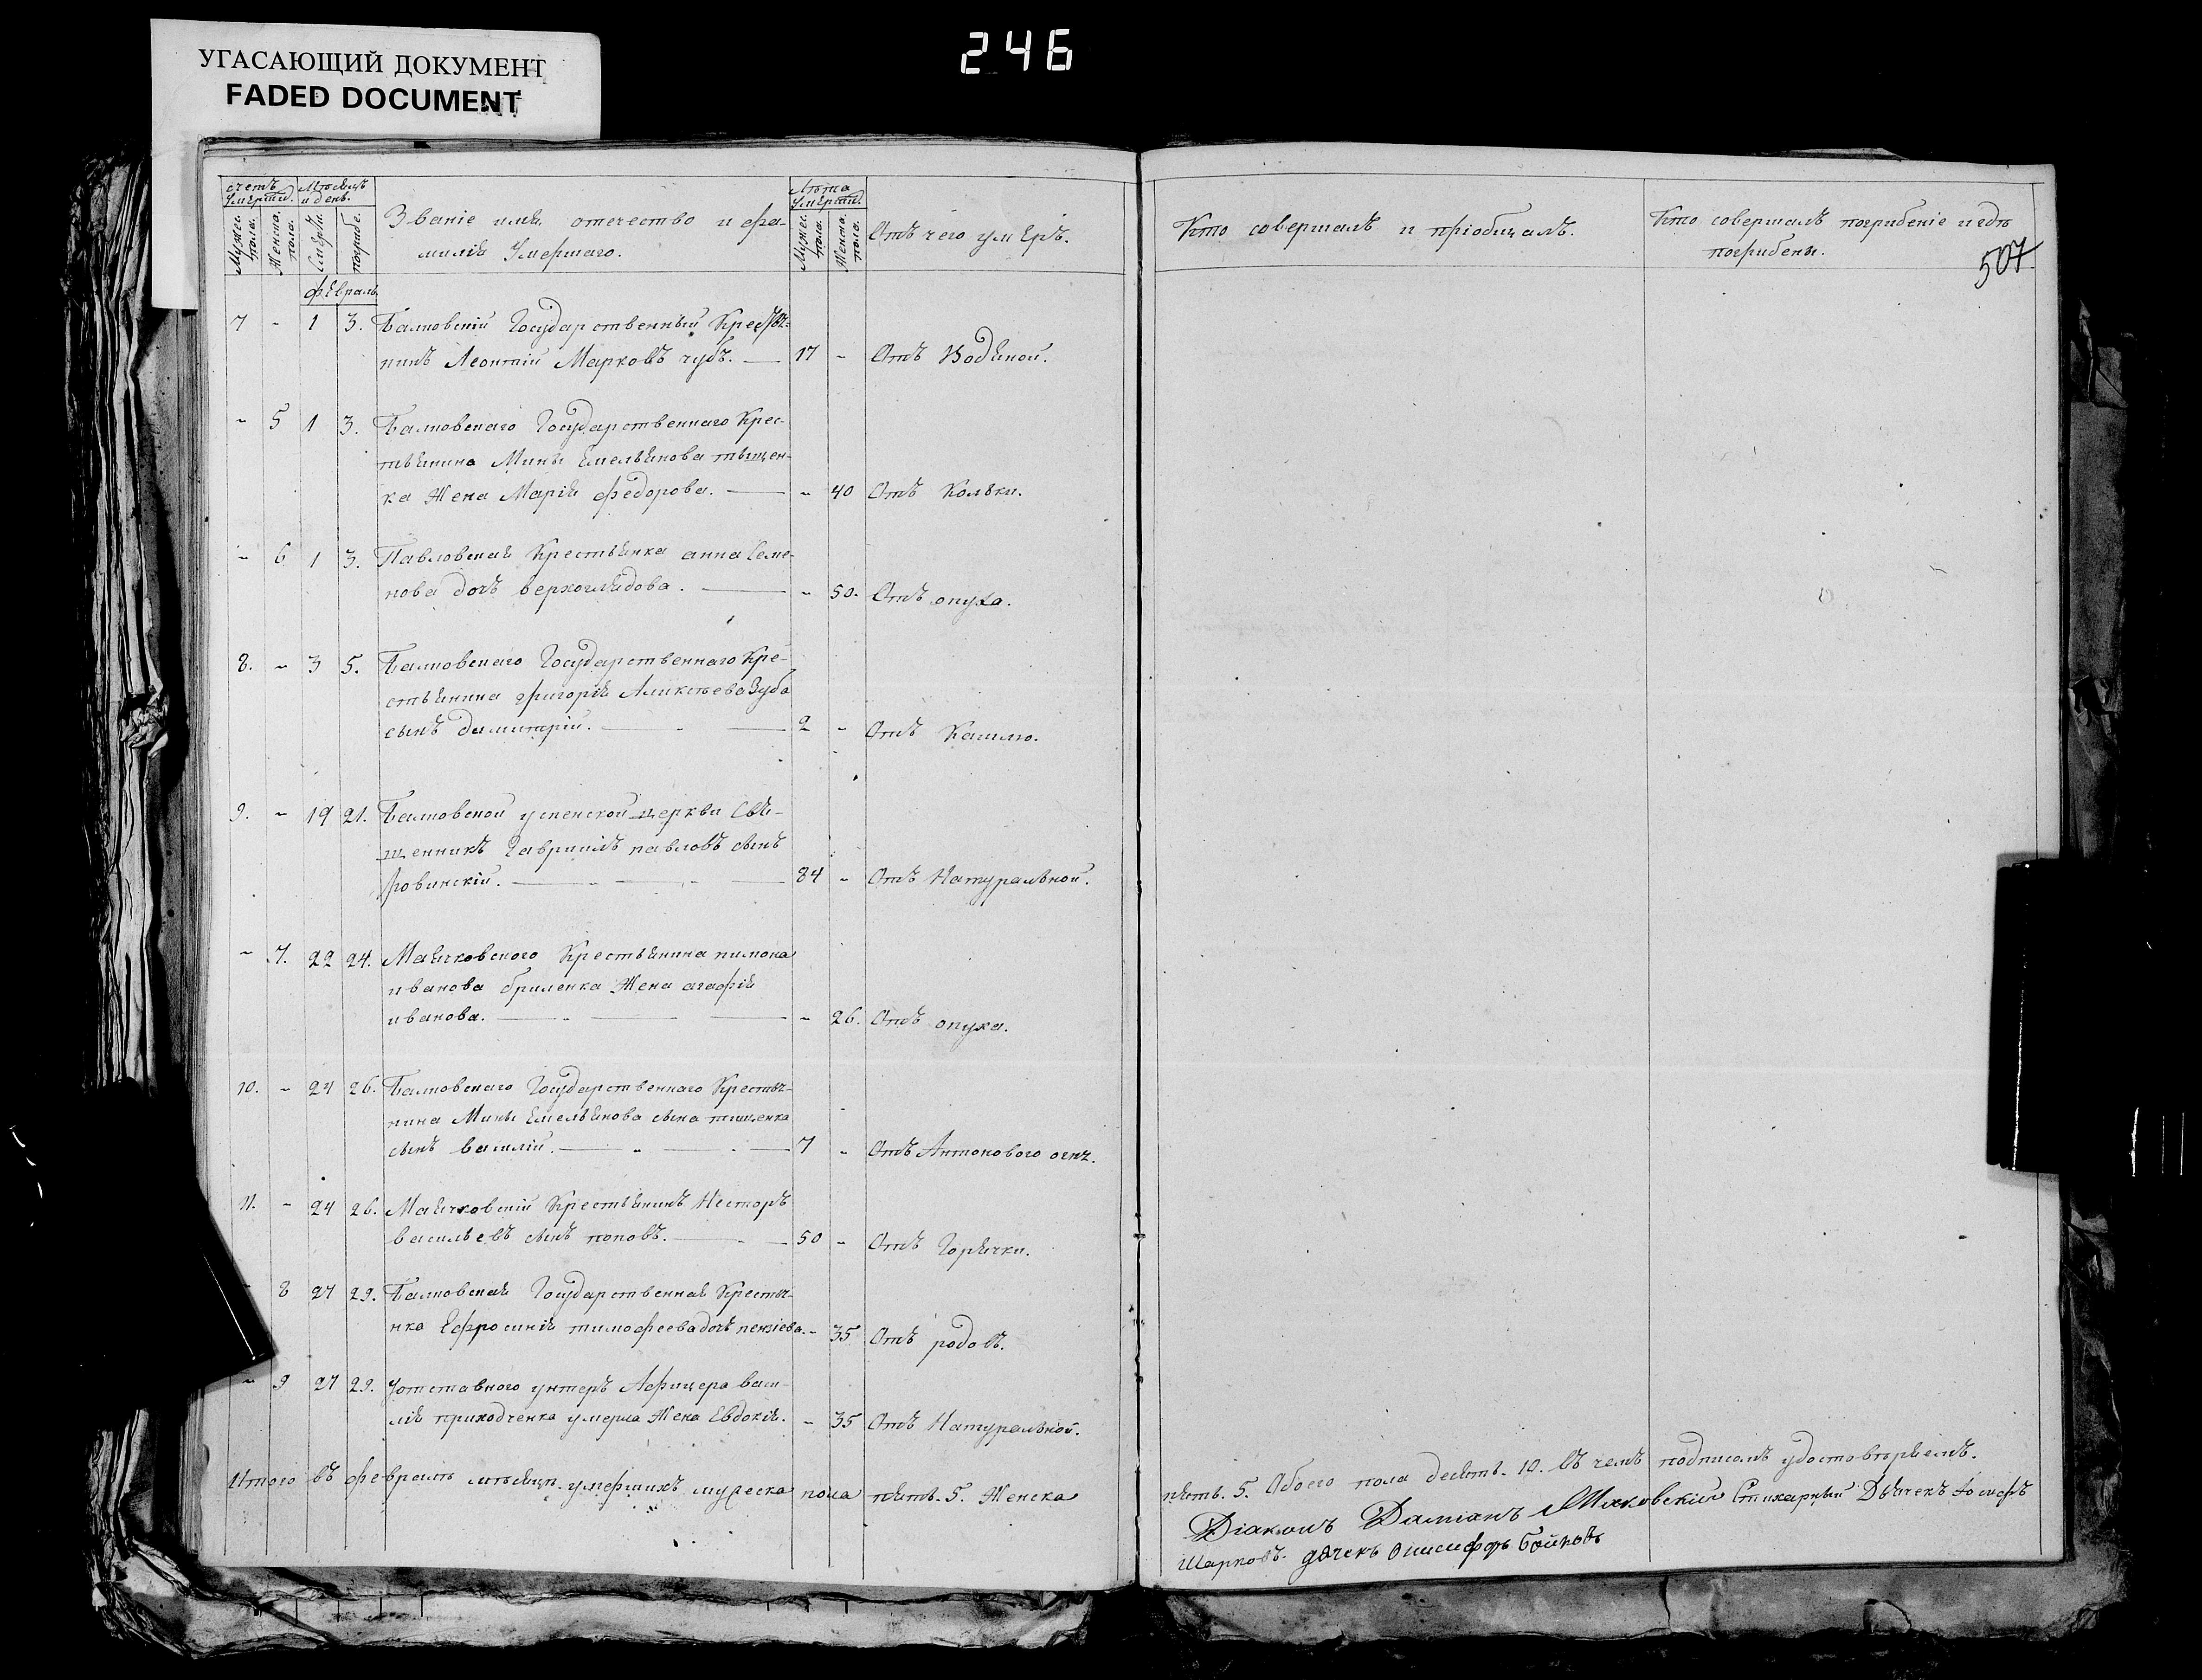 246
УГАСАЮЩИЙ ДОКУМЕНТ
FADED DOCUMENT
счетъ умерши. Мѣсяцъ и день. Лѣта умерши.
Мужес. пола. Женска. пола. Смерти погребе.
Званіе имя, отечество и фа-
милія Умершаго.
Мужес. пола. Женска. пола.
Отъ чего умеръ.
Кто совершалъ и пріобщалъ.
Кто совершалъ погрибеніе и гдѣ
погрибены.
507
февраль
7 - 1 3. Балковскій Государственный Крестья-
нинъ Леонтій Марковъ чубъ. — 17 - Отъ Водяной.
- 5 1 3. Балковскаго Государственнаго Крес-
тьянина Мины Емельянова тыщен-
ка Жена Марія федорова. — - 40 Отъ Кольки.
- 6 1 3. Павловская Крестьянка анна Семе-
нова дочь верхоглядова. — - 50. Отъ опуха.
8. - 3 5. Балковскаго Государственнаго Кре-
стьянина григорія Аликсѣева Зуба
сынъ димитрій. — 2 - Отъ Кашлю.
9. - 19 21. Балковской успенской церкви Свя-
щенникъ Гавриилъ павловъ сынъ
Ровинскій. — 84 - Отъ Натуральной.
- 7. 22 24. Маячковского Крестьянина пимона
иванова бриленка Жена агафія
иванова. — - 26. Отъ опуха.
10. - 24 26. Балковскаго Государственнаго Крестья-
нина Мины Емельянова сына тищенка
сынъ василій. — 7 - Отъ Антонового огня.
11. - 24 26. Маячковскій Крестьянинъ Несторъ
васильевъ сынъ поповъ. — 50 - Отъ Горячки.
- 8 27 29. Балковская Государственная Крестья-
нка Ефросинія тимофеева дочь пензіева. - 35 Отъ родовъ.
- 9 27 29. Уотставного унтеръ Афицера васи-
лія приходченка умерла Жена Евдокія. - 35 Отъ Натуральной.
Итого въ февралѣ мѣсяцѣ умершихъ мужеска пола пять. 5. Женска
пять. 5. Обоего пола десять. 10. въ чемъ подписомъ удостовѣряемъ.
Діаконъ Даміанъ Стихарный Дьячекъ Іосифъ
Шарковъ. дячекъ Онисиффъ Бойковъ